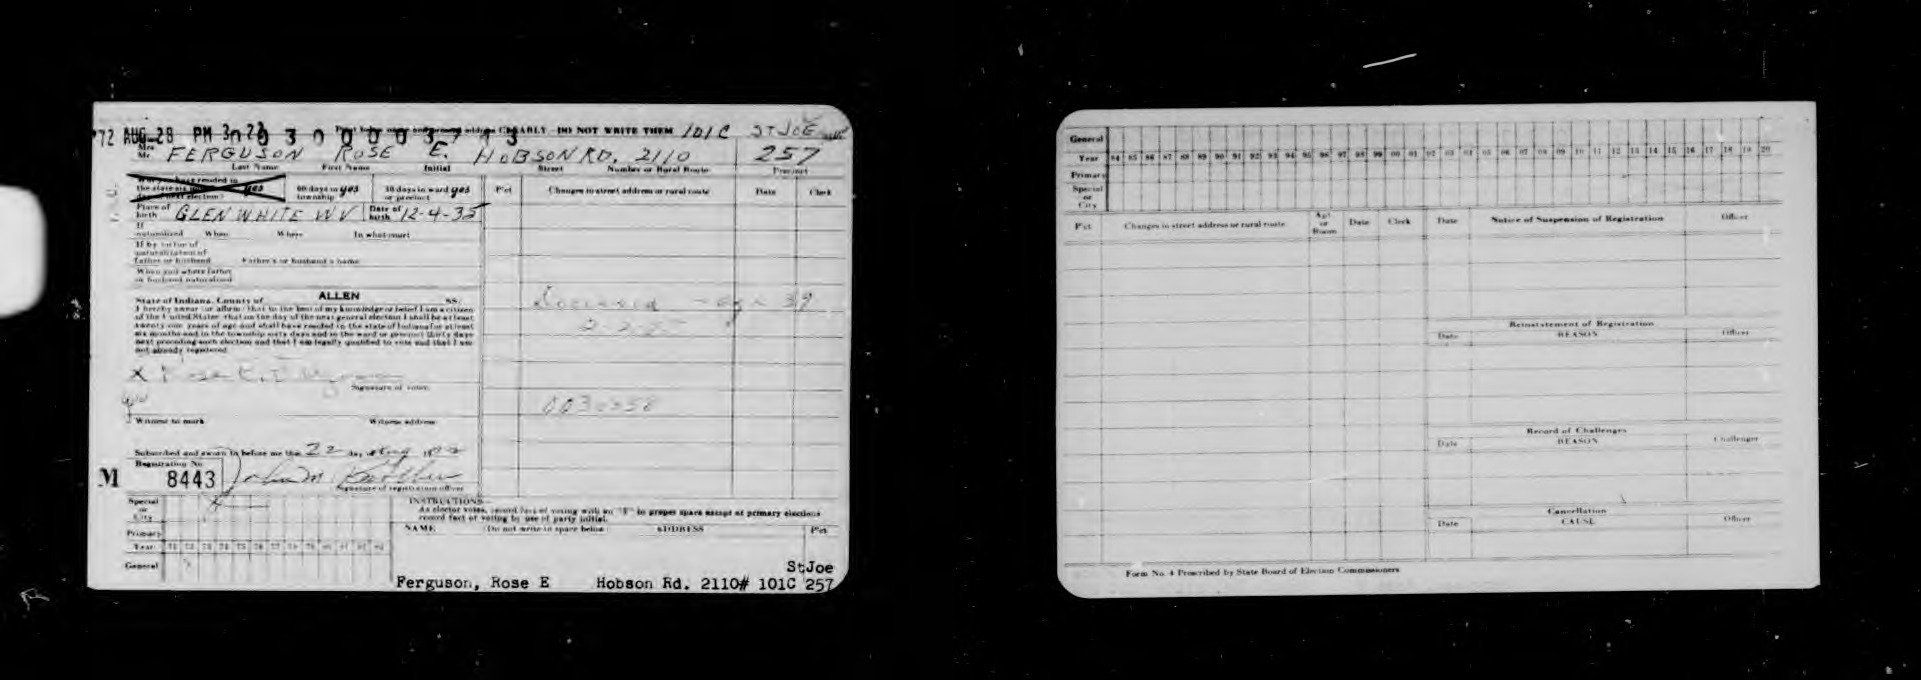 '72 AUG 28 PM 3 22 CLEARLY - DO NOT WRITE THEM 101C ST JOE
Mrs
Mr. FERGUSON ROSE E. HOBSON RD. 2110 257
Last Name First Name Initial Street Number or Rural Route Precinct
the state six yes 60 days in yes 30 days in ward yes P'ct Changes in street address or rural route Date Clerk
township or precinct
Place of birth GLEN WHITE WV Date of birth 12-4-35
If naturalized When Where In what court
If by virtue of
naturalization of
father or husband Father's or husband's name
When and where father
or husband naturalized
State of Indiana, County of ALLEN SS:
I hereby swear (or affirm) that to the best of my knowledge or belief I am a citizen
of the United States. That on the day of the next general election I shall be at least
twenty-one years of age and shall have resided in the state of Indiana for at least
six months and in the township sixty days and in the ward or precinct thirty days
next preceding such election and that I am legally qualified to vote and that I am
not already registered
X Rose E.
Signature of voter
Witness to mark Witness address
Subscribed and sworn to before me this 22 day of Aug
Registration No.
M 8443
Signature of registration officer
Special
or
City
Primary
Year 71 72 73 74 75 76 77 78 79 80 81 82 83 84
General
INSTRUCTIONS
As elector votes, record fact of voting with an "X" in proper space except at primary elections
record fact of voting by use of party initial.
NAME (Do not write in space below) ADDRESS P'ct
StJoe
Ferguson, Rose E Hobson Rd. 2110# 101C 257
General
Year 84 85 86 87 88 89 90 91 92 93 94 95 96 97 98 99 00 01 02 03 04 05 06 07 08 09 10 11 12 13 14 15 16 17 18 19 20
Primary
Special
or
City
P'ct Changes in street address or rural route Apt or Room Date Clerk Date Notice of Suspension of Registration Officer
Reinstatement of Registration
Date REASON Officer
Record of Challenges
Date REASON Challenger
Cancellation
Date CAUSE Officer
Form No. 4 Prescribed by State Board of Election Commissioners